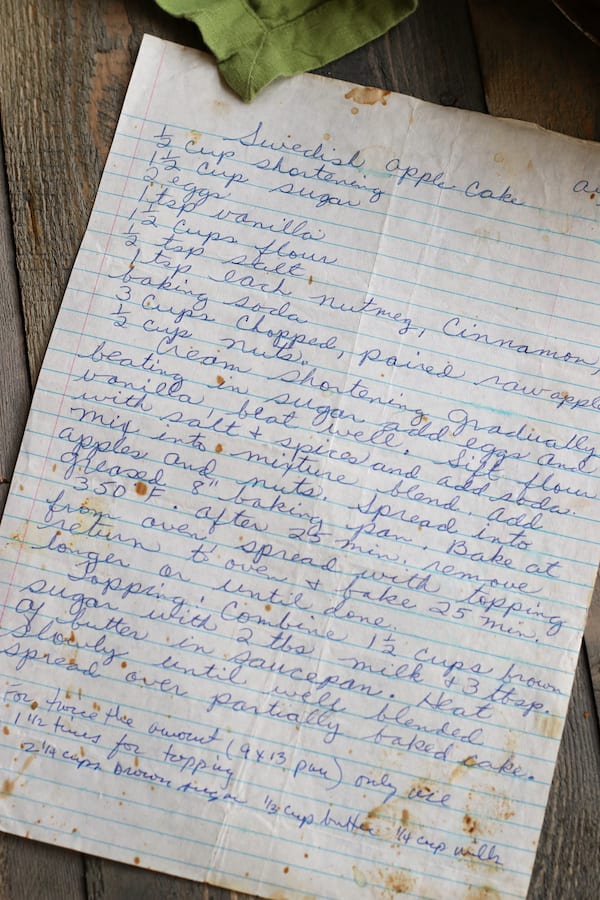 Swedish apple cake
½ cup shortening
1½ cup sugar
2 eggs
1 tsp vanilla
1½ cups flour
½ tsp salt
1 tsp each nutmeg, cinnamon,
baking soda
3 cups chopped, paired raw apple
½ cup nuts.
Cream shortening gradually
beating in sugar add eggs and
vanilla, beat well. Sift flour
with salt + spices and add soda.
mix into mixture blend. add
apples and nuts. Spread into
greased 8" baking pan. Bake at
350°F. after 25 min. remove
from oven, spread with topping
return to oven + bake 25 min.
longer or until done.
Topping: Combine 1½ cups brown
sugar with 2 tbs milk + 3 tbsp.
of butter in saucepan. Heat
slowly until well blended
spread over partially baked cake.
For twice the amount (9x13 pan) only use
1 1/2 times for topping
2 1/4 cups brown sugar 1/3 cup butter 1/4 cup milk